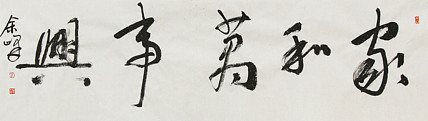 家和萬事興
余峰